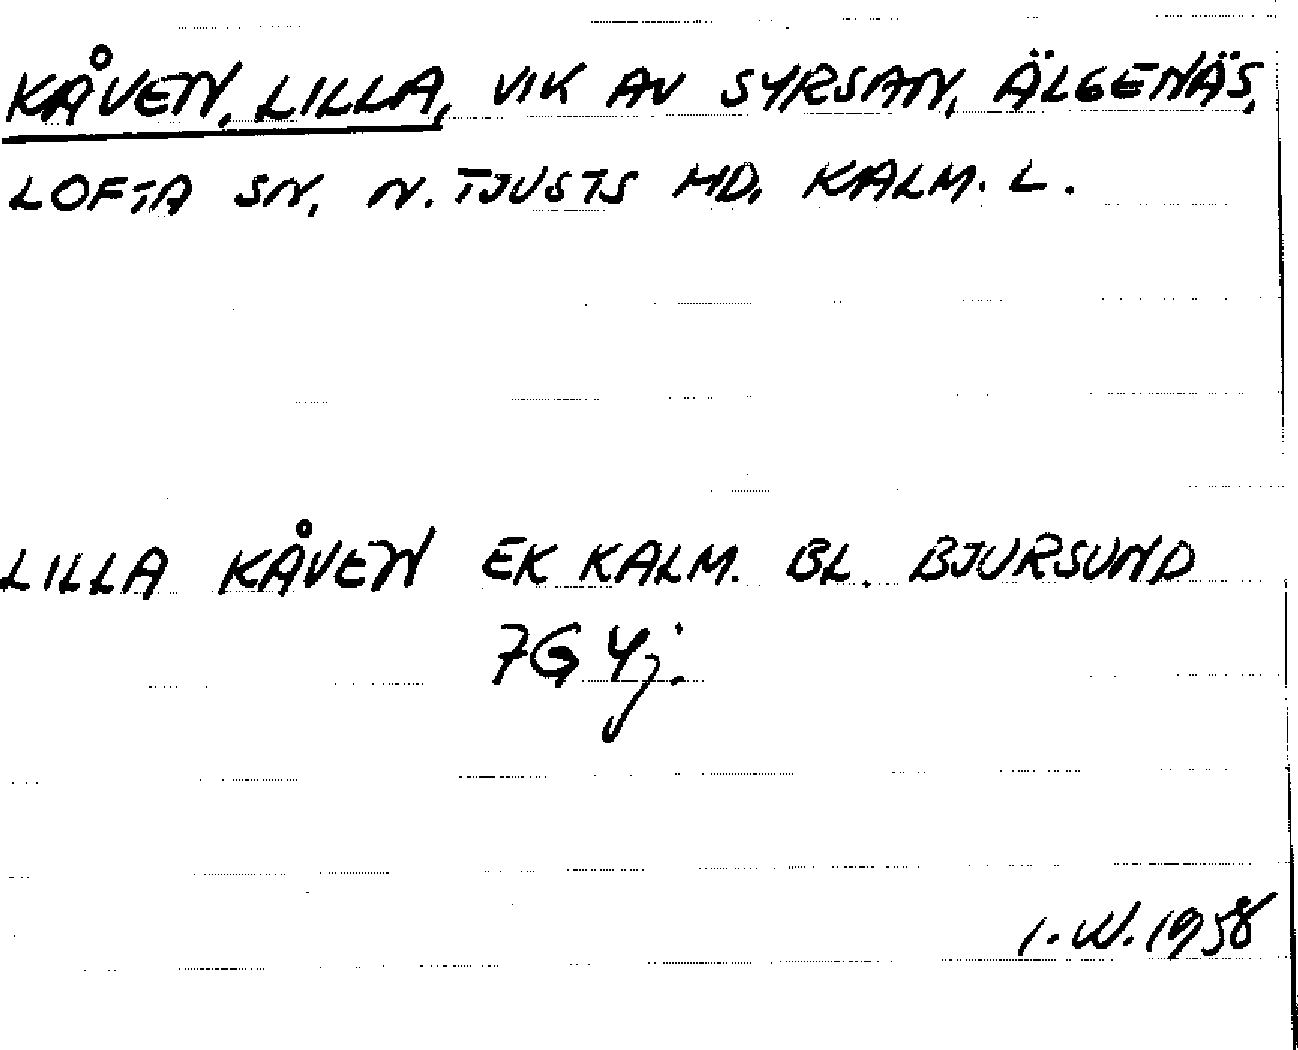 KÅVEN, LILLA, VIK AV SYRSAN, ÄLGENÄS,
LOFTA SN, N. TJUSTS HD, KALM. L.
LILLA KÅVEN EK KALM. BL. BJURSUND
7G 4j.
I. W. 1958